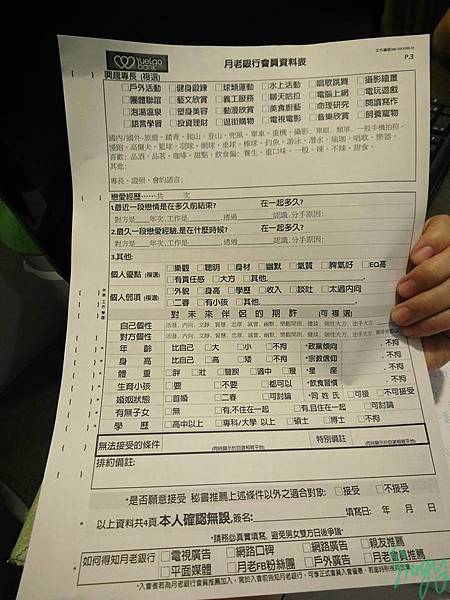 YueLao bank
月老銀行會員資料表
P.3
興趣專長 (複選)
□戶外活動 □健身鍛鍊 □球類運動 □水上活動 □唱歌跳舞 □攝影繪畫
□團體聯誼 □藝文欣賞 □義工服務 □聊天哈拉 □電腦上網 □電玩遊戲
□泡湯溫泉 □塑身美容 □動漫欣賞 □美食廚藝 □命理研究 □閱讀寫作
□語言學習 □投資理財 □逛街購物 □電視電影 □音樂欣賞 □飼養寵物
國內/國外-旅遊, 踏青, 爬山, 登山, 兜風, 單車, 重機, 攝影: 單眼, 類單, 一般手機拍照,
慢跑, 高爾夫, 籃球, 羽球, 網球, 桌球, 棒球, 釣魚, 游泳, 潛水, 瑜珈, 唱歌, 樂器,
喜歡: 品酒, 品茗, 咖啡, 甜點, 飲食偏: 養生, 重口味, 一般, 辣, 不辣, 甜食,
其他:
專長、證照、會的語言:
戀愛經歷……共 次
1.最近一段戀情是在多久前結束? 在一起多久?
對方是___年次,工作是___,透過___認識,分手原因:
2.最久一段戀愛經驗,是在什麼時候? 在一起多久?
對方是___年次,工作是___,透過___認識,分手原因:
3.其他:
個人優點 (複選) □樂觀 □聰明 □身材 □幽默 □氣質 □脾氣好 □EQ高
□有責任感 □大方 □其他
個人弱項 (複選) □外貌 □身高 □學歷 □收入 □談吐 □太過內向
□二春 □有小孩 □其他
對未來伴侶的期許 (可複選)
自己個性 活潑, 內向, 文靜, 賢慧, 忠厚, 誠實, 幽默, 樂觀開朗, 健談, 個性大方, 出手大方
對方個性 活潑, 內向, 文靜, 賢慧, 忠厚, 誠實, 幽默, 樂觀開朗, 健談, 個性大方, 出手大方
年齡 比自己 □大 □小 □不拘 *政黨傾向 , 不拘
身高 比自己 □高 □矮 □不拘 *宗教信仰 , 不拘
體重 □胖 □壯 □豐腴 □適中 □瘦 *星座 , 不拘
生育小孩 □要 □不要 □都可以 *飲食習慣 , 不拘
婚姻狀態 □首婚 □二春 □可討論 *同姓氏 □可接 □不可接受
有無子女 □無 □有,不住在一起 □有,目住在一起 □可討論
學歷 □高中以上 □專科/大學 以上 □碩士 □博士 □不拘
無法接受的條件 (同時顯示於自選和剛平台) 特別備註 (同時顯示於自選和剛平台)
排約備註:
*是否願意接受 秘書推薦上述條件以外之適合對象: □接受 □不接受
*以上資料共4頁,本人確認無誤,簽名: 填寫日: 年 月 日
*請務必真實填寫, 避免男女雙方日後爭議*
如何得知月老銀行 □電視廣告 □網路口碑 □網路廣告 □親友推薦
□平面媒體 □月老FB粉絲團 □戶外廣告 □月老會員推薦